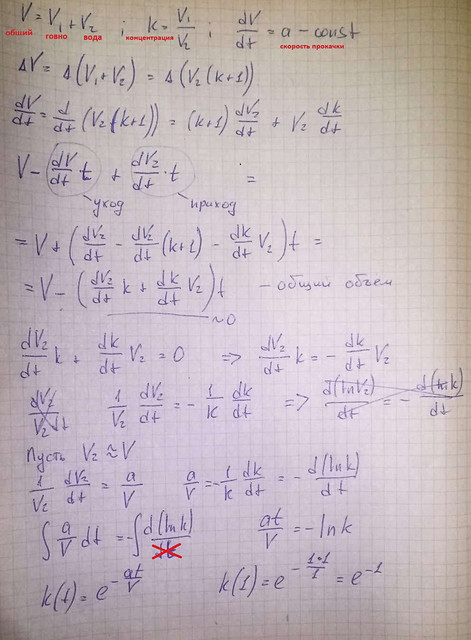 V = V₁ + V₂ ; k = V₁/V₂ ; dV/dt = a - const
общий говно вода концентрация скорость прокачки
ΔV = Δ(V₁+V₂) = Δ(V₂(k+1))
dV/dt = d/dt (V₂(k+1)) = (k+1) dV₂/dt + V₂ dk/dt
V - dV/dt t + dV₂/dt · t =
уход приход
= V + (dV₂/dt - dV₂/dt (k+1) - dk/dt V₂) t =
= V - (dV₂/dt k + dk/dt V₂) t - общий объем
~0
dV₂/dt k + dk/dt V₂ = 0 => dV₂/dt k = - dk/dt V₂
dV₂/V₂dt 1/V₂ dV₂/dt = - 1/k dk/dt => d(lnV₂)/dt = - d(lnk)/dt
Пусть V₂ ≈ V
1/V₂ dV₂/dt = a/V a/V = - 1/k dk/dt = - d(lnk)/dt
∫ a/V dt = -∫ d(lnk)/dt at/V = - lnk
k(1) = e^(-at/V) k(1) = e^(-1*1/1) = e^(-1)